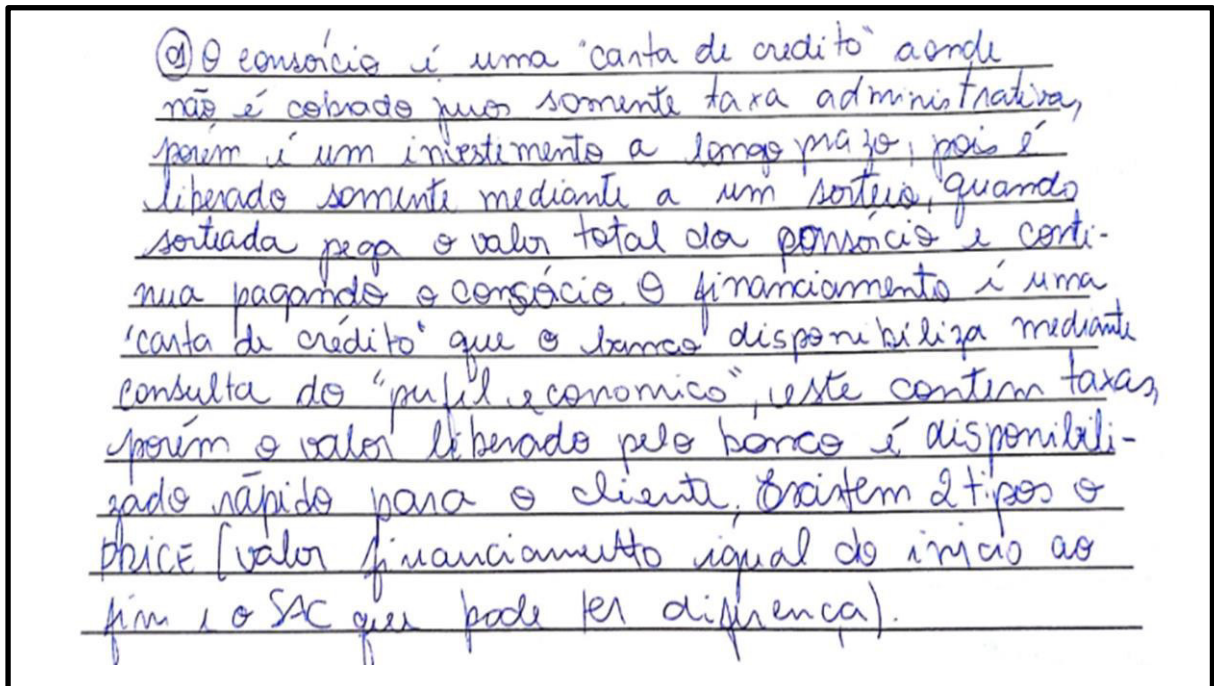 a) O consórcio é uma "carta de credito" aonde
não é cobrado juros somente taxa administrativa,
porém é um investimento a longo prazo, pois é
liberado somente mediante a um sorteio, quando
sorteada pega o valor total da consórcio e conti-
nua pagando o consócio. O financiamento é uma
"carta de crédito" que o banco disponibiliza mediante
consulta do "perfil economico", este contem taxas,
porém o valor liberado pelo banco é disponibili-
zado rápido para o cliente. Existem 2 tipos o
PRICE (valor financiamento igual do início ao
fim e o SAC que pode ter diferença).